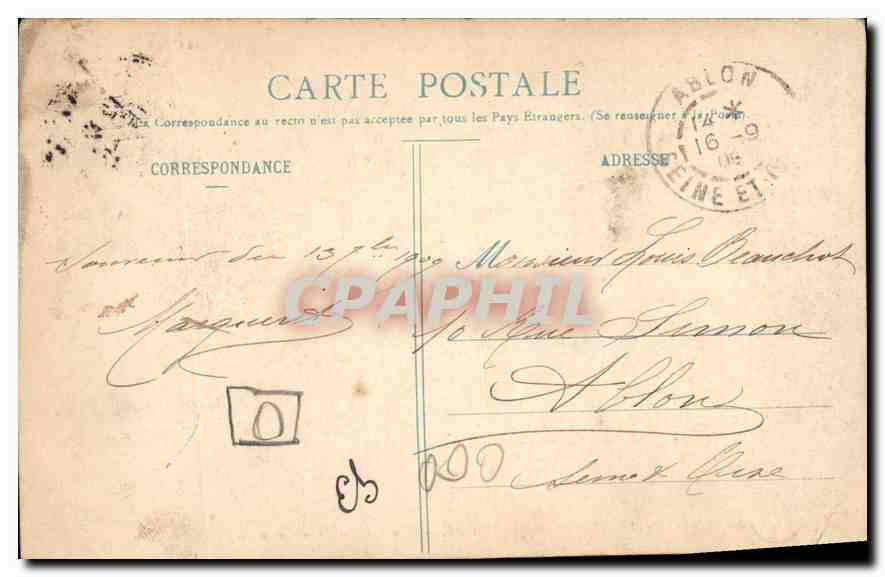 CARTE POSTALE
La Correspondance au recto n'est pas acceptée par tous les Pays Etrangers. (Se renseigner à la Poste)
CORRESPONDANCE
Souvenir du 13 7bre 1909
Marguerite
ADRESSE
Monsieur Louis Beauchot
10 Rue Simon
Ablon
Seine & Oise
ABLON
14 *
16 - 9
09
SEINE ET
CPAPHIL